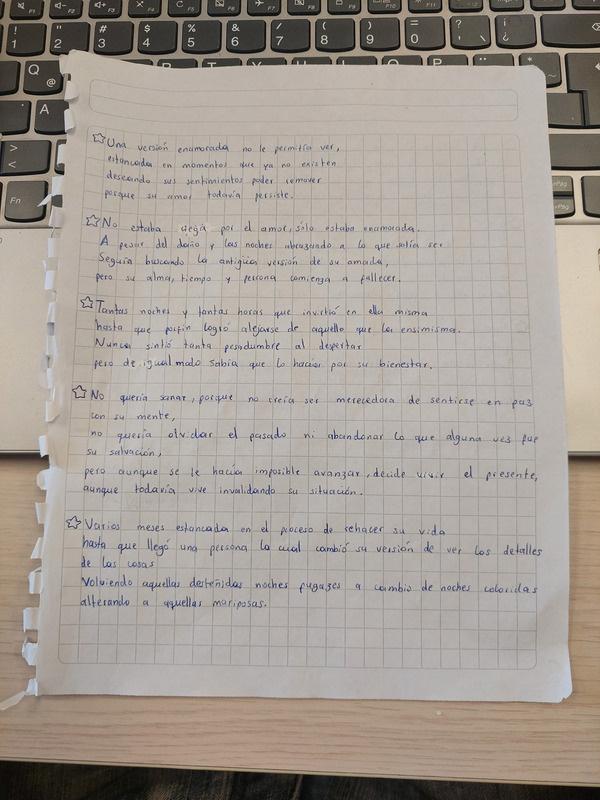 Una versión enamorada no le permitía ver,
estancada en momentos que ya no existen
deseando sus sentimientos poder remover
porque su amor todavía persiste.
No estaba ciega por el amor, sólo estaba enamorada.
A pesar del daño y las noches abrazando a lo que solía ser
Seguía buscando la antigüa versión de su amada,
pero su alma, tiempo y persona comienza a fallecer.
Tantas noches y tantas horas que invirtió en ella misma
hasta que porfin logró alejarse de aquello que la ensimisma.
Nunca sintió tanta pesadumbre al despertar
pero de igual modo sabía que lo hacía por su bienestar.
No quería sanar, porque no creía ser merecedora de sentirse en paz
con su mente,
no quería olvidar el pasado ni abandonar lo que alguna vez fue
su salvación,
pero aunque se le hacía imposible avanzar, decide vivir el presente,
aunque todavía vive invalidando su situación.
Varios meses estancada en el proceso de rehacer su vida
hasta que llegó una persona la cual cambió su versión de ver los detalles
de las cosas
Volviendo aquellas desteñidas noches fugazes a cambio de noches coloridas
alterando a aquellas mariposas.